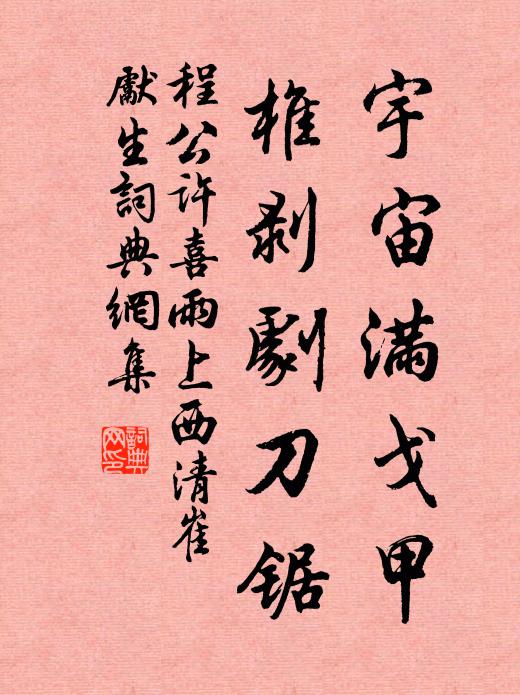 宇宙滿戈甲
椎剥劇刀锯
程公许喜雨上西清崔
獻生詞典網集
詞典
网印